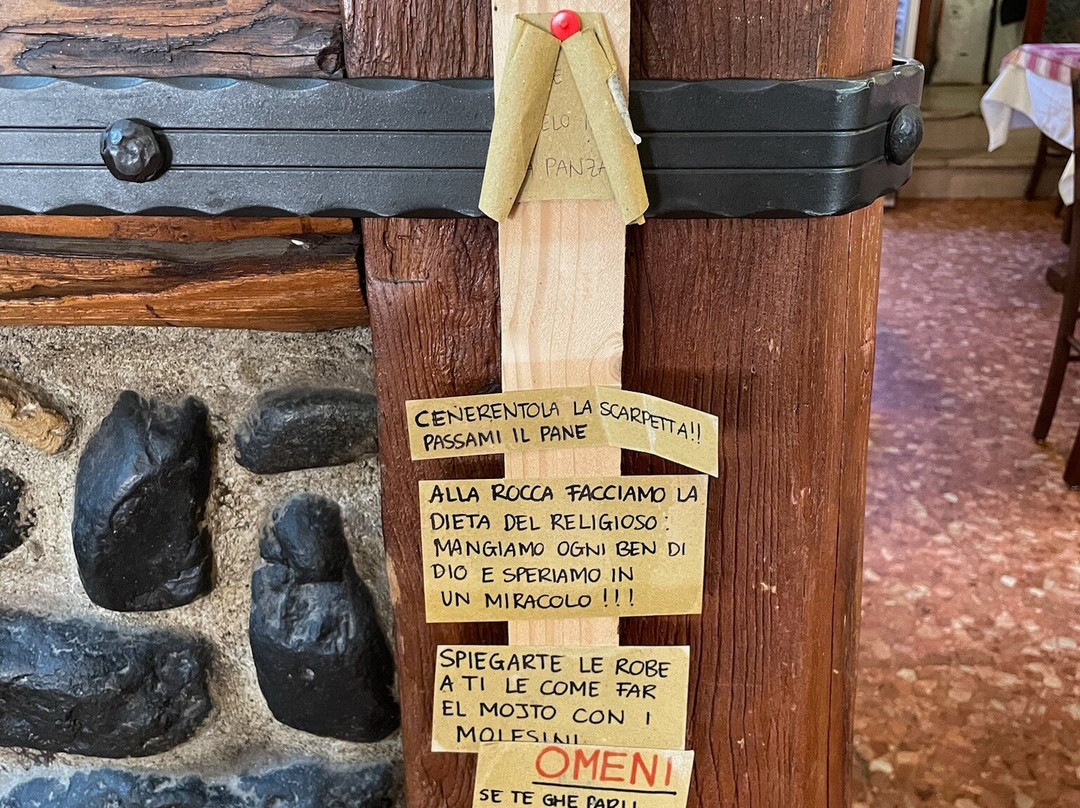 PANZA
CENERENTOLA LA SCARPETTA!!
PASSAMI IL PANE
ALLA ROCCA FACCIAMO LA
DIETA DEL RELIGIOSO:
MANGIAMO OGNI BEN DI
DIO E SPERIAMO IN
UN MIRACOLO!!!
SPIEGARTE LE ROBE
A TI LE COME FAR
EL MOJTO CON I
MOLESINI
OMENI
SE TE GHE PARLI